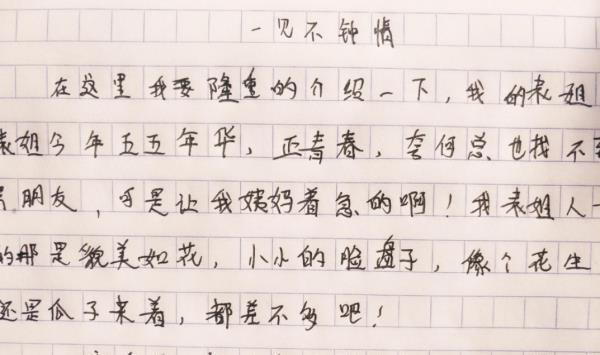 一见不钟情
在这里我要隆重的介绍一下，我的表姐
表姐今年五五年华，正青春，奈何总也找不
朋友，可是让我姨妈着急的啊！我表姐人
的那是貌美如花，小小的脸盘子，像个花生
还是瓜子来着，都差不多吧！